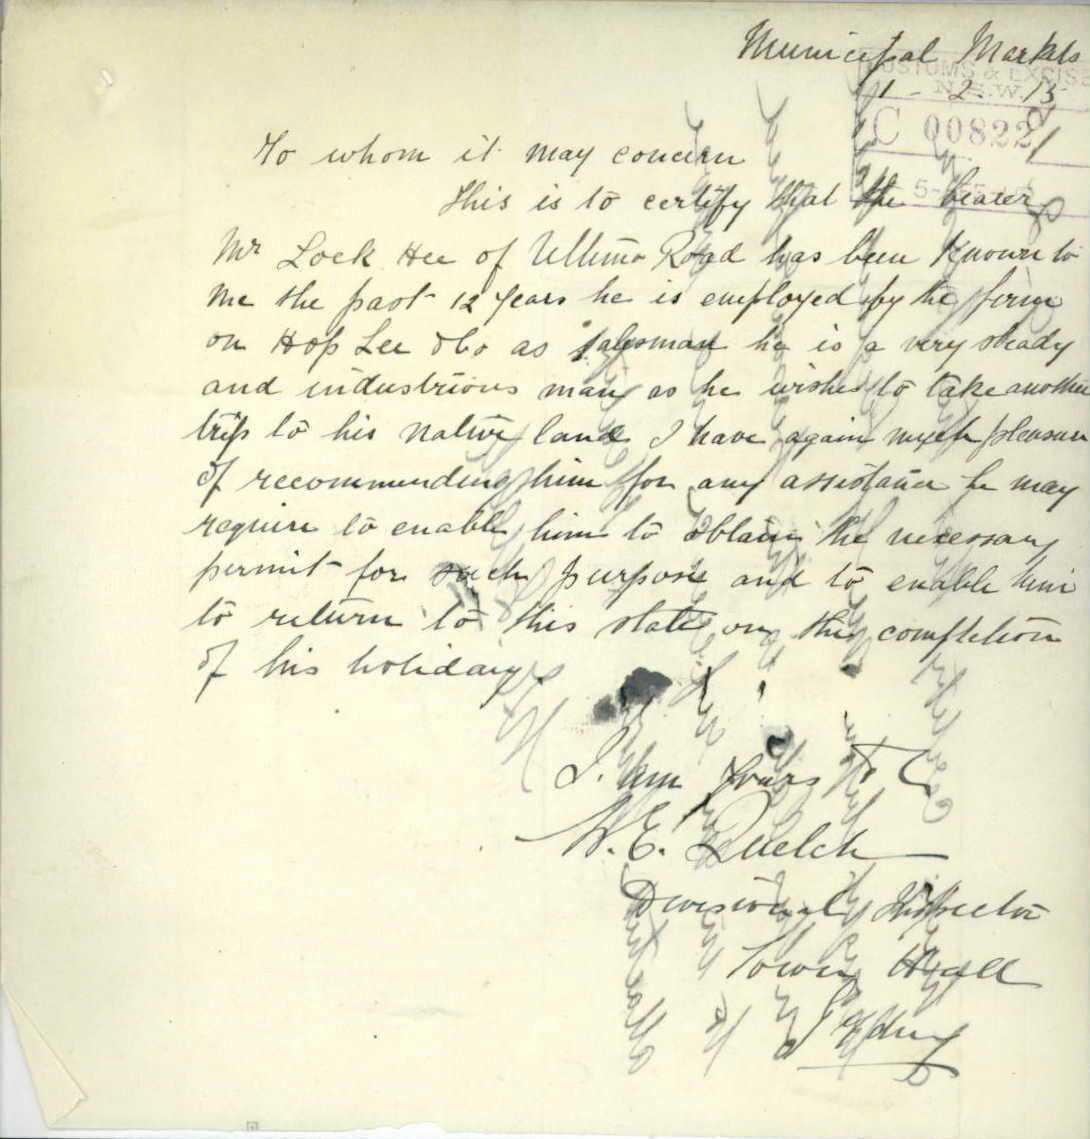 Municipal Markets
CUSTOMS & EXCISE
N.S.W.
1 - 2 - 13
C 00822
To whom it may concern
This is to certify that the bearer
Mr Lock Hee of Ultimo Road has been known to
me the past 12 years he is employed by the firm
on Hop Lee & Co as salesman he is a very steady
and industrious man as he wishes to take another
trip to his native land I have again much pleasure
of recommending him for any assistance he may
require to enable him to obtain the necessary
permit for such purpose and to enable him
to return to this state on the completion
of his holiday
I. am Yours &c
W. E. Quelch
Divisional Inspector
Town Hall
Sydney